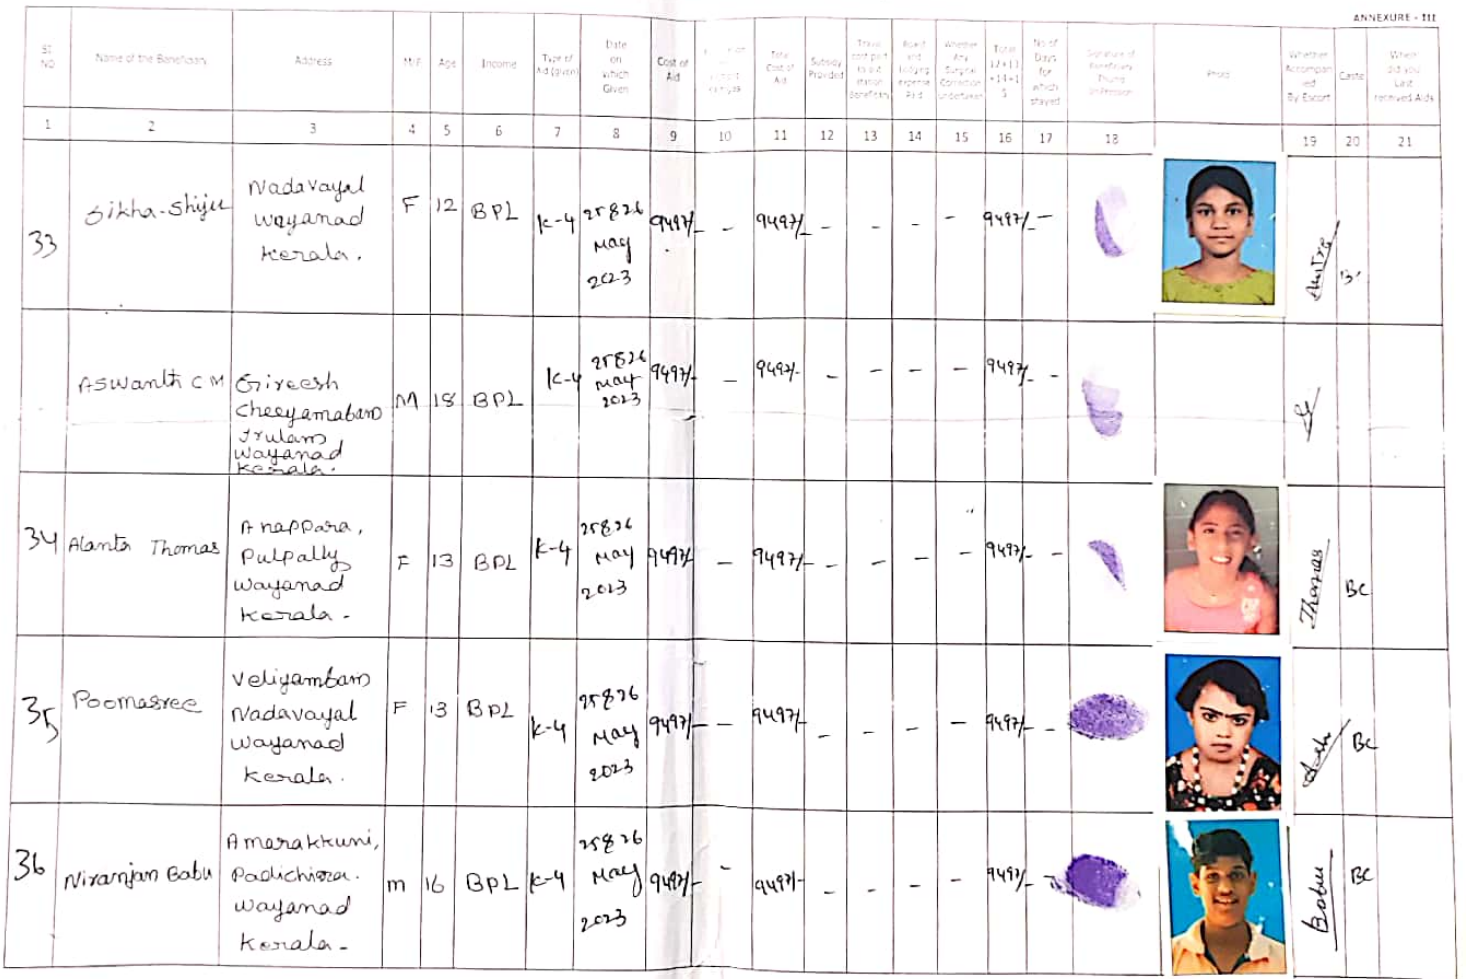 ANNEXURE - III
Sl NO
Name of the Beneficiary
Address
M/F
Age
Income
Type of Aid (given)
Date on which Given
Cost of Aid
Total Cost of Aid
Subsidy Provided
Travel cost paid to out station Beneficiary
Board and Lodging expense Paid
Whether Any Surgical Correction Undertaken
Total 12+13 +14+1 5
No of Days for which stayed
Signature of Beneficiary Thumb Impression
Photo
Whether Accompan ied By Escort
Caste
When did you Last received Aids
1 2 3 4 5 6 7 8 9 10 11 12 13 14 15 16 17 18 19 20 21
33 Sikha-Shiju
Nadavayal
Wayanad
Kerala.
F 12 BPL K-4
25&26
May
2023
9497/- - 9497/- - - - - 9497/- -
BC
Aswanth C M
Gireesh
Cheeyambam
Irulam
Wayanad
Kerala.
M 18 BPL K-4
25&26
May
2023
9497/- - 9497/- - - - - 9497/- -
34 Alanta Thomas
Anappara,
Pulpally
Wayanad
Kerala -
F 13 BPL K-4
25&26
May
2023
9497/- - 9497/- - - - - 9497/- -
Thomas
BC
35 Poomasree
Veliyambam
Nadavayal
Wayanad
Kerala.
F 13 BPL K-4
25&26
May
2023
9497/- - 9497/- - - - - 9497/- -
BC
36 Niranjan Babu
Amarakkuni,
Padichira.
Wayanad
Kerala -
m 16 BPL K-4
25&26
May
2023
9497/- - 9497/- - - - - 9497/- -
Babu
BC